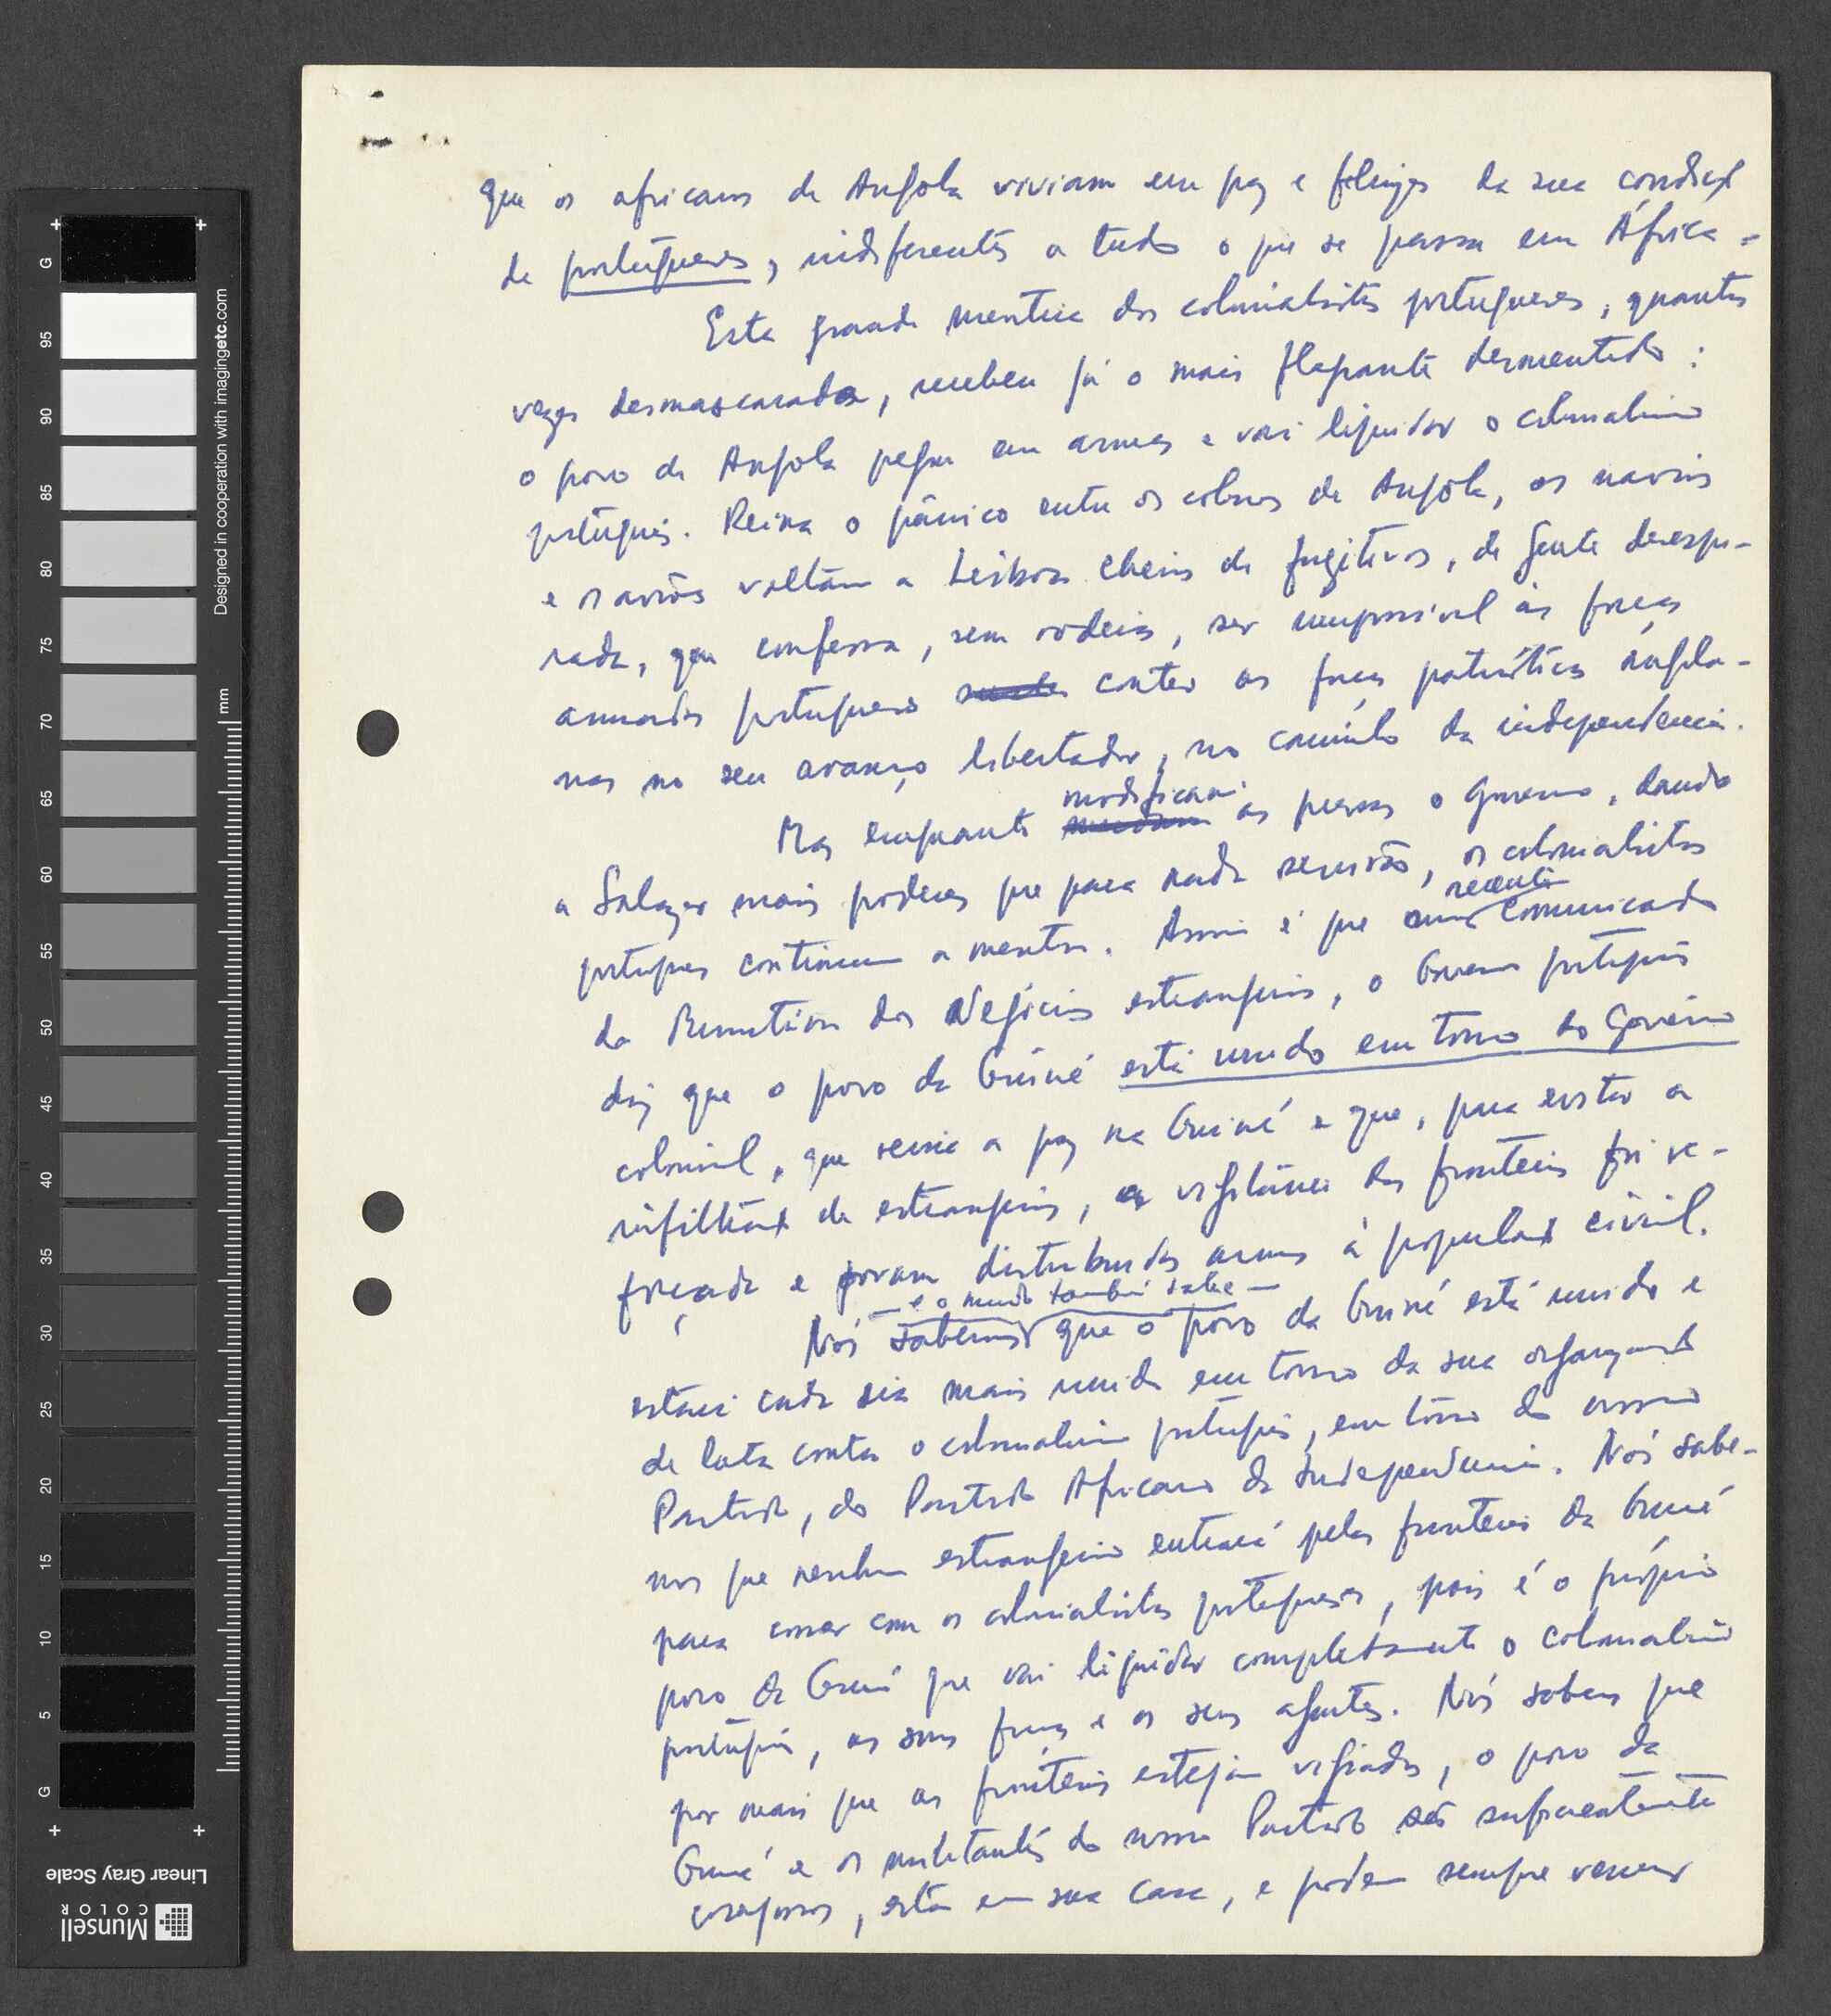 que os africanos de Angola viviam em paz e felizes da sua condição
de portugueses, indiferentes a tudo o que se passa em África.
Esta grande mentira dos colonialistas portugueses, quantas
vezes desmascarada, recebeu já o mais flagrante desmentido:
o povo de Angola pegou em armas e vai liquidar o colonialismo
português. Reina o pânico entre os colonos de Angola, os navios
e os aviões voltam a Lisboa cheios de fugitivos, de gente desespe-
rada, que confessa, sem rodeios, ser impossível às forças
armadas portuguesas conter as forças patrióticas angola-
nas no seu avanço libertador, no caminho da independência.
modificam
Mas enquanto as pessoas o Governo, dando
a Salazar mais poderes que para nada servirão, os colonialistas
recente
portugueses continuam a mentir. Assim é que comunicado
dos Negócios estrangeiros, o Governo português
diz que o povo da Guiné está unido em torno do Govêrno
colonial, que reina a paz na Guiné e que, para evitar a
infiltração de estrangeiros, a vigilância das fronteiras foi re-
forçada e foram distribuidas armas à população civil.
— e o mundo também sabe —
Nós sabemos que o povo da Guiné está unido e
estará cada dia mais unido em torno da sua organização
de luta contra o colonialismo português, em torno do nosso
Partido, do Partido Africano da Independência. Nós sabe-
mos que nenhum estrangeiro entrará pelas fronteiras da Guiné
para correr com os colonialistas portugueses, pois é o próprio
povo da Guiné que vai liquidar completamente o colonialismo
português, as suas forças e os seus agentes. Nós sabemos que
por mais que as fronteiras estejam vigiadas, o povo da
Guiné e os militantes do nosso Partido são suficientemente
corajosos, estão em sua casa, e podem sempre vencer
Designed in cooperation with imagingetc.com
mm
G
95
90
85
80
75
70
65
60
55
50
45
40
35
30
25
20
15
10
5
G
Linear Gray Scale
Munsell
COLOR